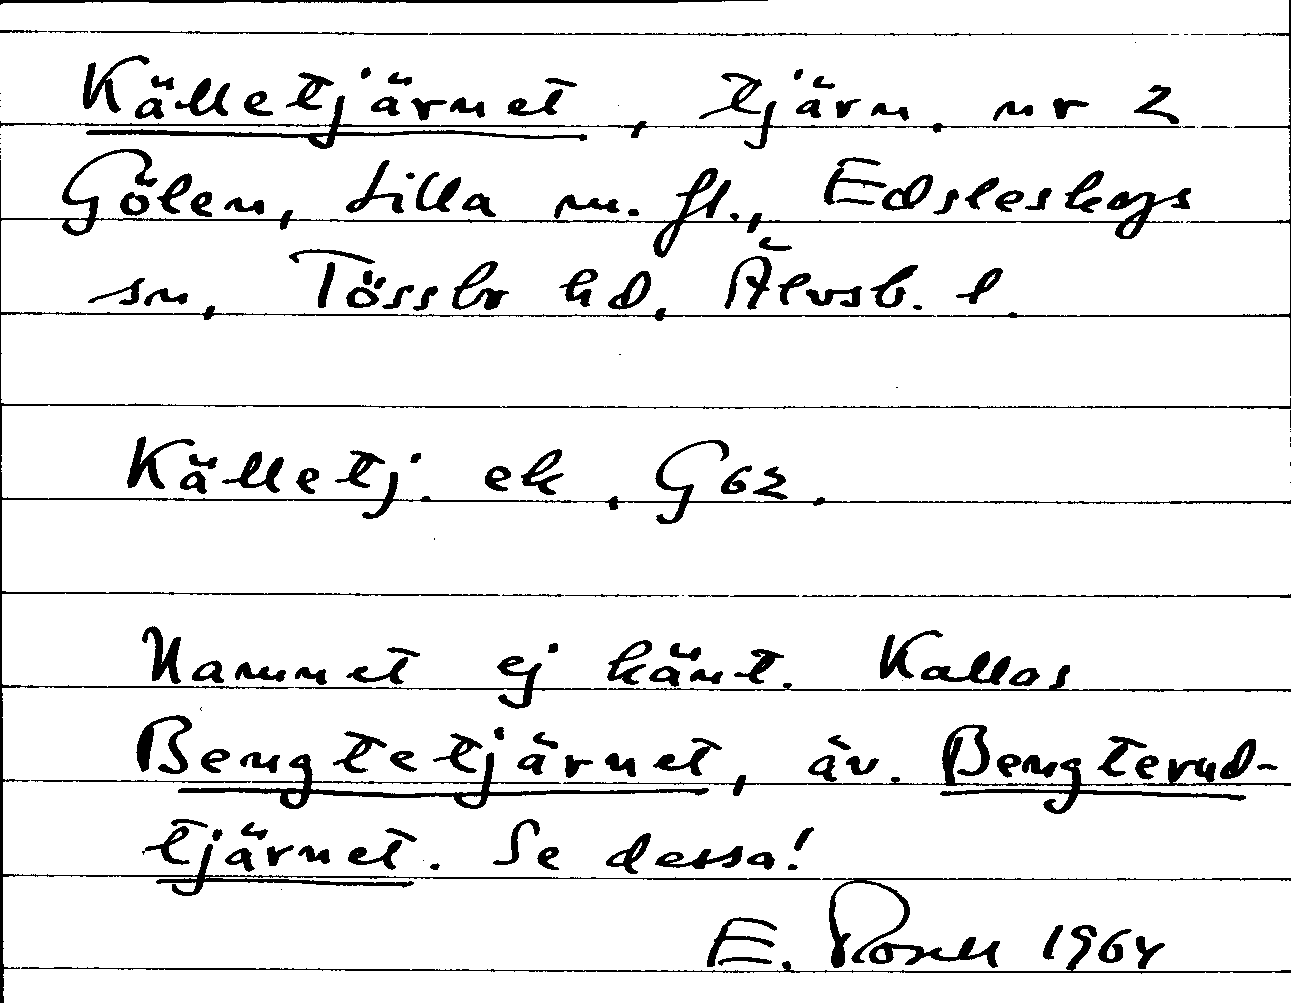 Källetjärnet, tjärn, nr 2
Gölen, Lilla m. fl., Edsleskogs
sn, Tössbo hd, Älvsb. l.
Källetj. ek. G62.
Namnet ej känt. Kallas
Bengtetjärnet, äv. Bengterud-
tjärnet. Se dessa!
E. Rosell 1964